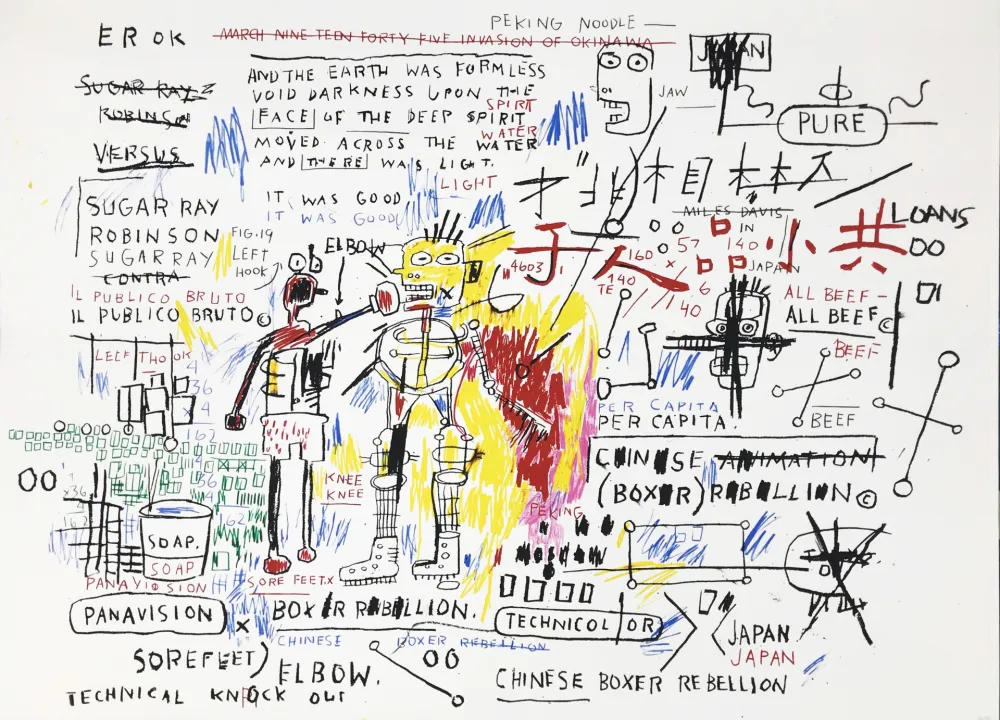 PEKING NOODLE —
ER OK
MARCH NINE TEEN FORTY FIVE INVASION OF OKINAWA
JAPAN
AND THE EARTH WAS FORMLESS
VOID DARKNESS UPON THE
SPIRIT
FACE OF THE DEEP SPIRIT
WATER
MOVED ACROSS THE WATER
AND THERE WAS LIGHT.
LIGHT
SUGAR RAY
ROBINSON
VERSUS
JAW
PURE
IT WAS GOOD
IT WAS GOOD
SUGAR RAY
ROBINSON
SUGAR RAY
CONTRA
IL PUBLICO BRUTO
IL PUBLICO BRUTO©
FIG.19
LEFT
HOOK
ELBOW
MILES DAVIS
IN
140
JAPAN
人
小
共
LOANS
57
160
x
4603
140
TE
6
40
ALL BEEF –
ALL BEEF©
BEEF
BEEF
LEEF THO OK
4
36
x 4
162
x36
36
4
162
PER CAPITA
PER CAPITA.
CHINESE ANIMATION
(BOXER) REBELLION©
KNEE
KNEE
PEKING
MOSCOW
SOAP.
SOAP
PANAVISION
SORE FEET.X
PANAVISION
X
BOXER REBELLION.
TECHNICOLOR
CHINESE BOXER REBELLION
JAPAN
JAPAN
SOREFEET)
ELBOW.
TECHNICAL KNOCK OUT
CHINESE BOXER REBELLION